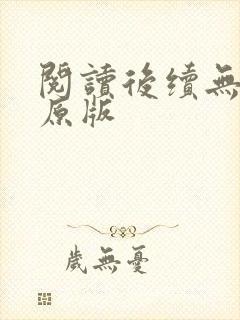 閱讀後續無
原版
歲無憂